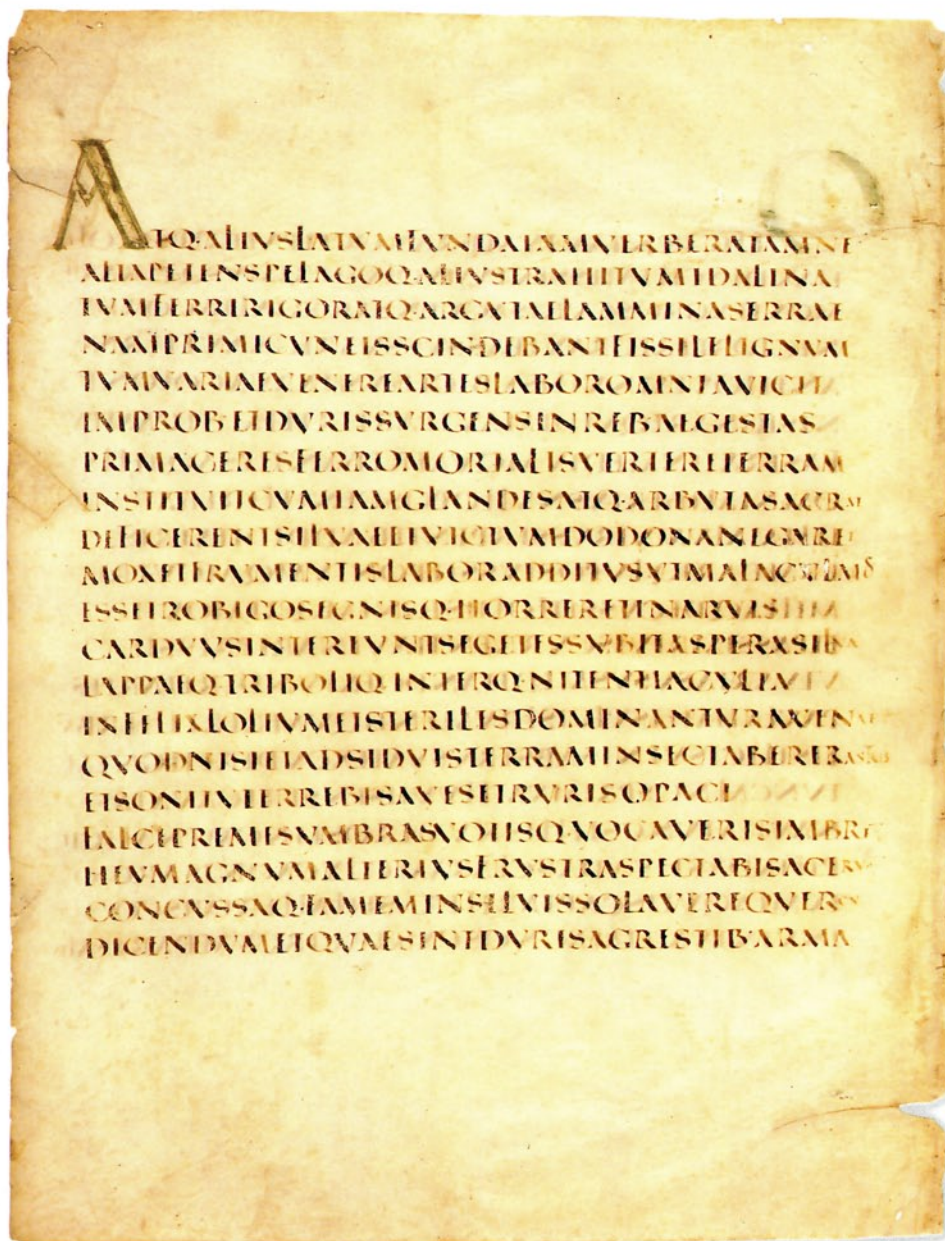 ATQ·ALIVSLATVMFVNDAIAMVERBERATAMNE
ALTAPETENSPELAGOQ·ALIVSTRAHITVMIDALINA
TVMFERRIRIGORATQ·ARGVTAELAMMINASERRAE
NAMPRIMICVNEISSCINDEBANTFISSILELIGNVM
TVMVARIAEVENEREARTESLABOROMNIAVICIT
IMPROBETDVRISSVRGENSINREB·AEGESTAS
PRIMACERESFERROMORTALISVERTERETERRAM
INSTITVITCVMIAMGLANDESATQ·ARBVTASACRA
DEFICERENTSILVAEETVICTVMDODONANEGARE
MOXETFRVMENTISLABORADDITVSVTMALACVLMOS
ESSETROBIGOSEGNISQ·HORRERETINARVIS
CARDVVSINTEREVNTSEGETESSVBITASPERASILVA
LAPPAEQ·TRIBOLIQ·INTERQ·NITENTIACVLTA
INFELIXLOLIVMETSTERILESDOMINANTVRAVENAE
QVODNISIETADSIDVISTERRAMINSECTABERERAS
ETSONITVTERREBISAVESETRVRISOPACI
FALCEPREMESVMBRASVOTISQ·VOCAVERISIMBRE
HEVMAGNVMALTERIVSFRVSTRASPECTABISACERV
CONCVSSAQ·FAMEMINSILVISSOLAVEREQVERC
DICENDVMETQVAESINTDVRISAGRESTIB·ARMA